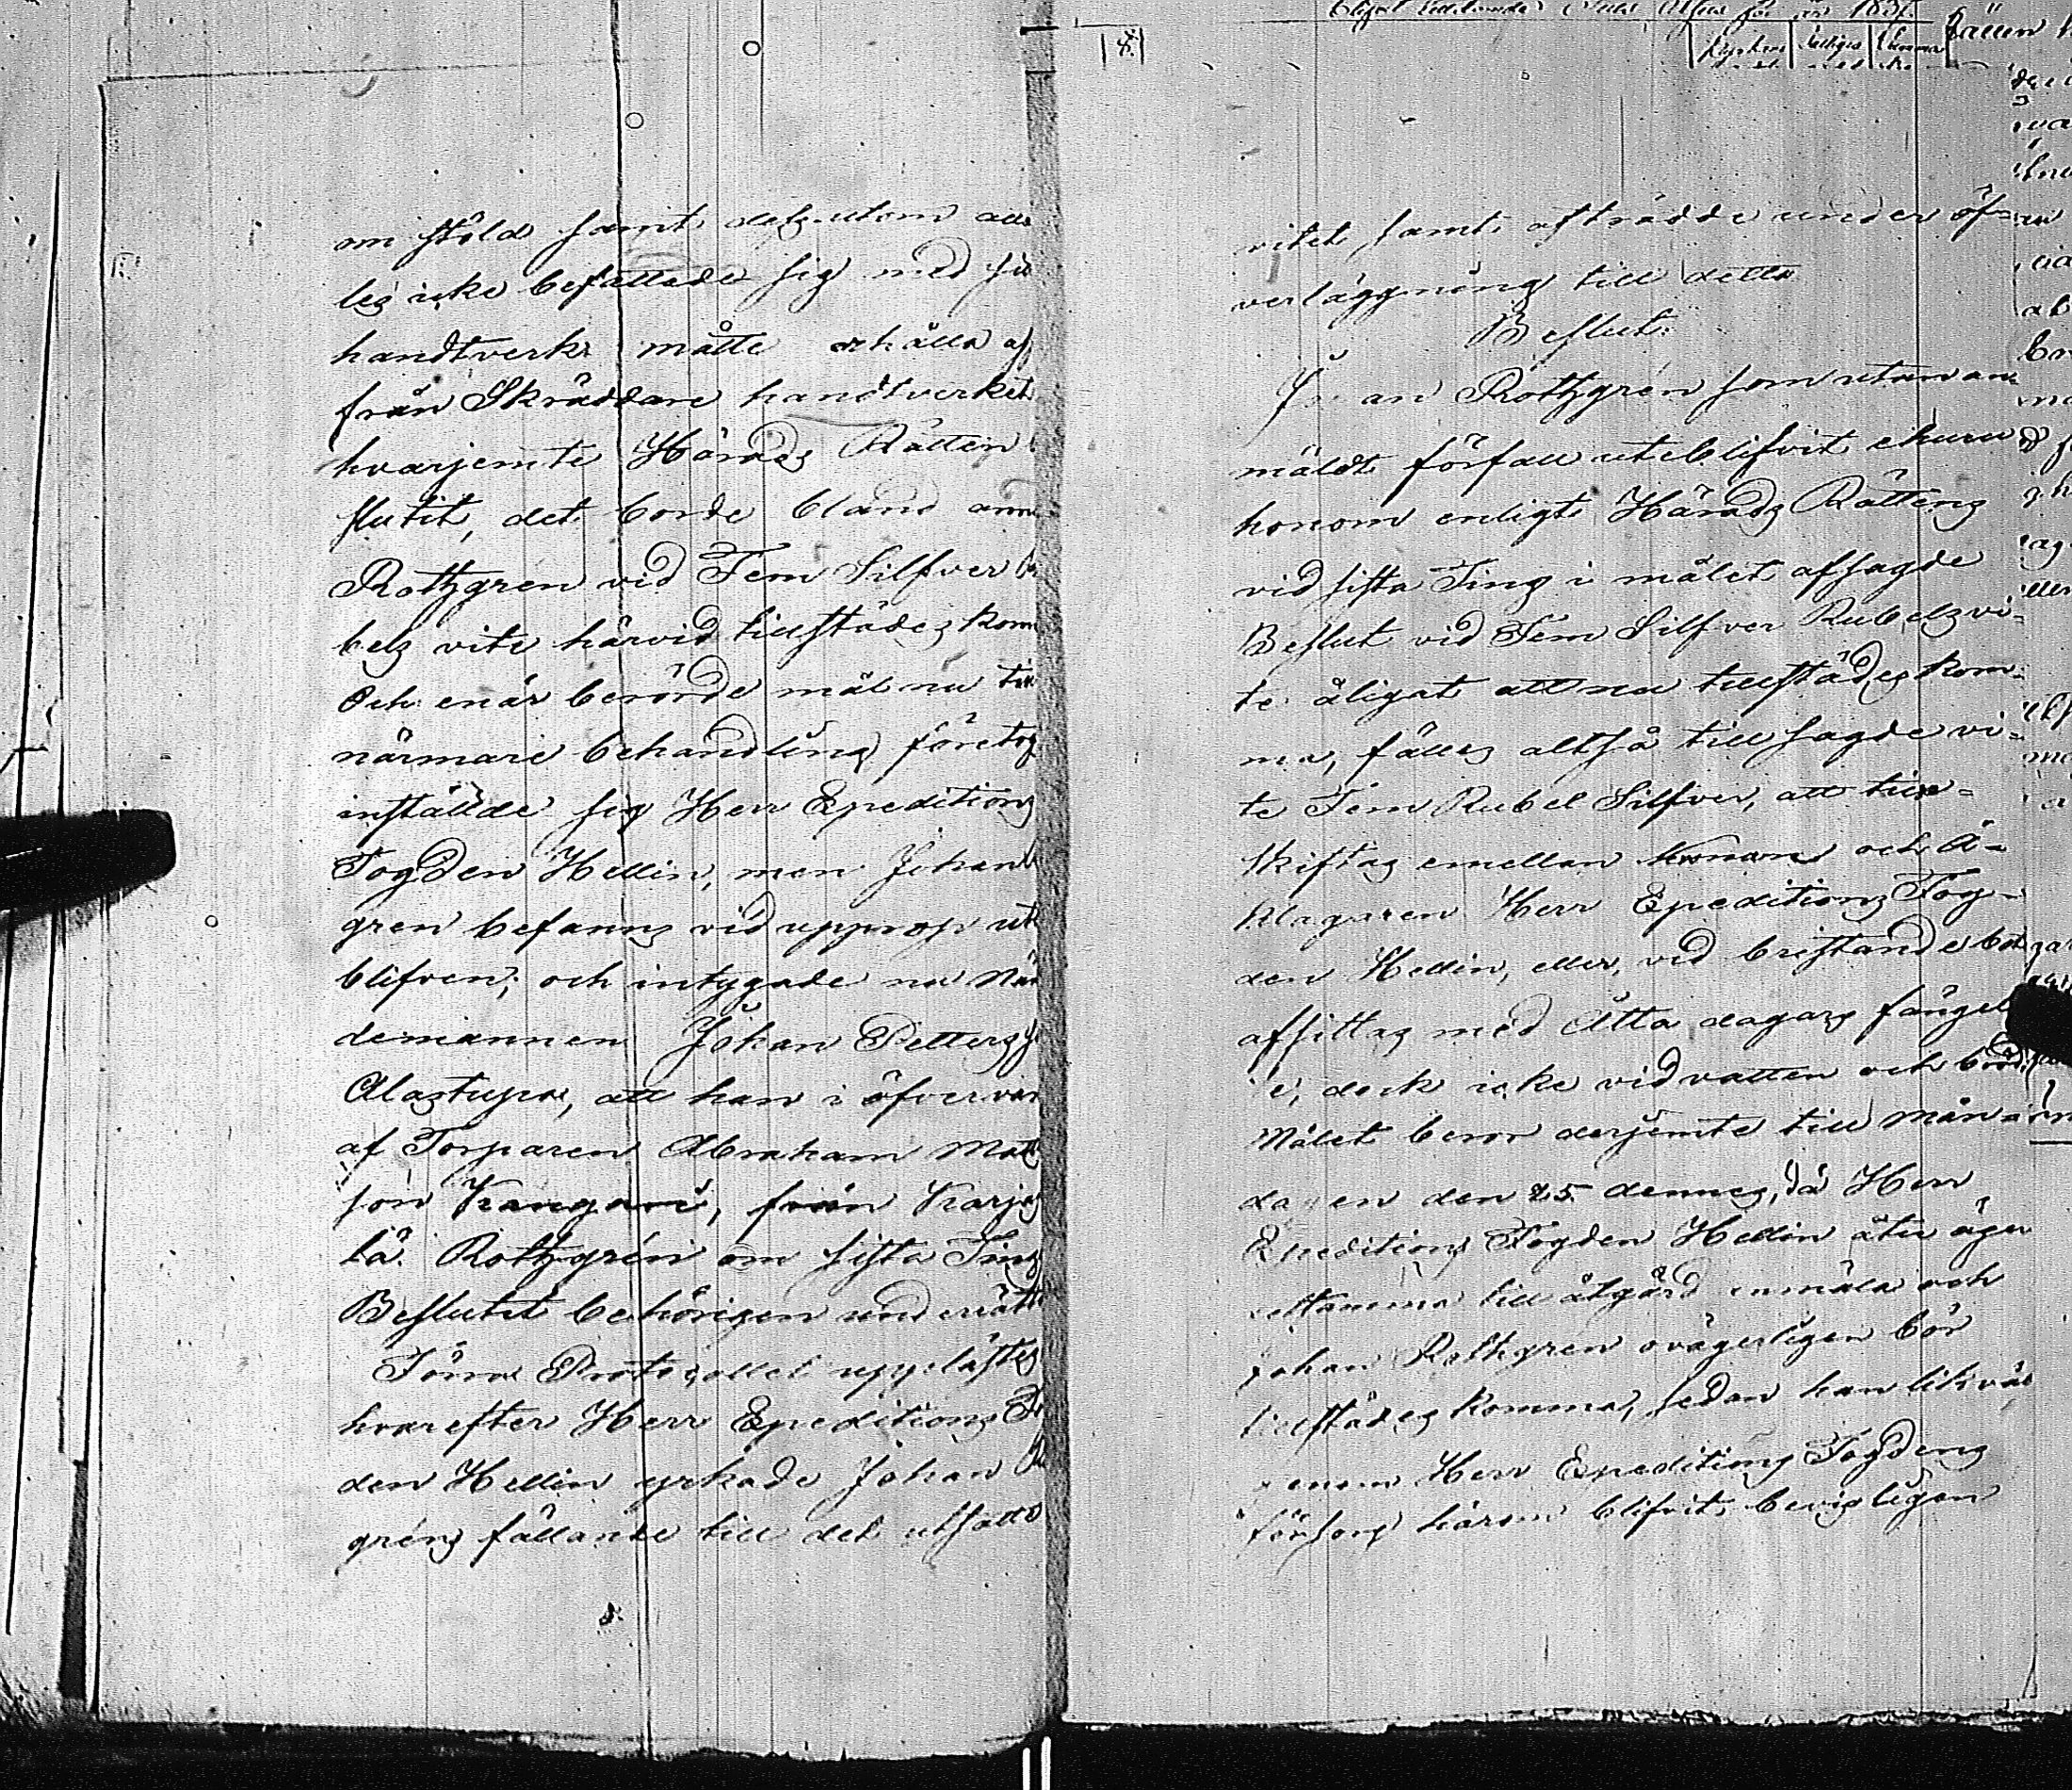 om stöld samt dessutom
les icke befattade sig med
handtverk måtte erhålla af
från Skräddare handtverket
hvarjemte Härads Rätten
slutit, det borde bland
Rothgren vid Fem Silfver
bels vite härvid tillstädes kom
Och enär berörde mål nu till
närmare behandling företogs
inställde sig Herr Expeditions
Fogden Hellin, men Johan
gren befanns vid upprop ut
blifven; och intygade nu Nän
demannen Johan Petters
Alastupa, att han i öfvervar
af Torparen Abraham Mats
son Kangani, från Karja
lä. Rothgren om sista Tings
Beslutet behörigen underrätt
Förra Protocollet upplästes
hvarefter Herr Expeditions
den Hellin yrkade Johan
gréns fällande till det utsatta
vitet samt afträdde under öf-
verläggning till detta
Beslut:
Johan Rothgrén som utan an-
mäldt förfall uteblifvit ehuru
honom enligt Härads Rättens
vid sista Ting i målet afsagde
Beslut vid Fem Silfver Rubels vi-
te åligat att nu tillstädes kom-
ma, fälles altså till sagde vi-
te Fem Rubel Silfver, att
skiftas emellan Kronan och Å-
klagaren Herr Expeditions Fog-
den Hellin, eller, vid bristande bot
afsittas med Åtta dagars fängel
e, dock icke vid vatten och bröd.
Målet beror derjemte till Mån-
dagen den 25 dennes, då Herr
Expeditions Fogden Hellin åter äger
detsamma till åtgärd anmäla och
Johan Rothgren ovägerligen bör
tillstädes komma, sedan han likväl
genom Herr Expeditions Fogdens
försorg härom blifvit bevisligen